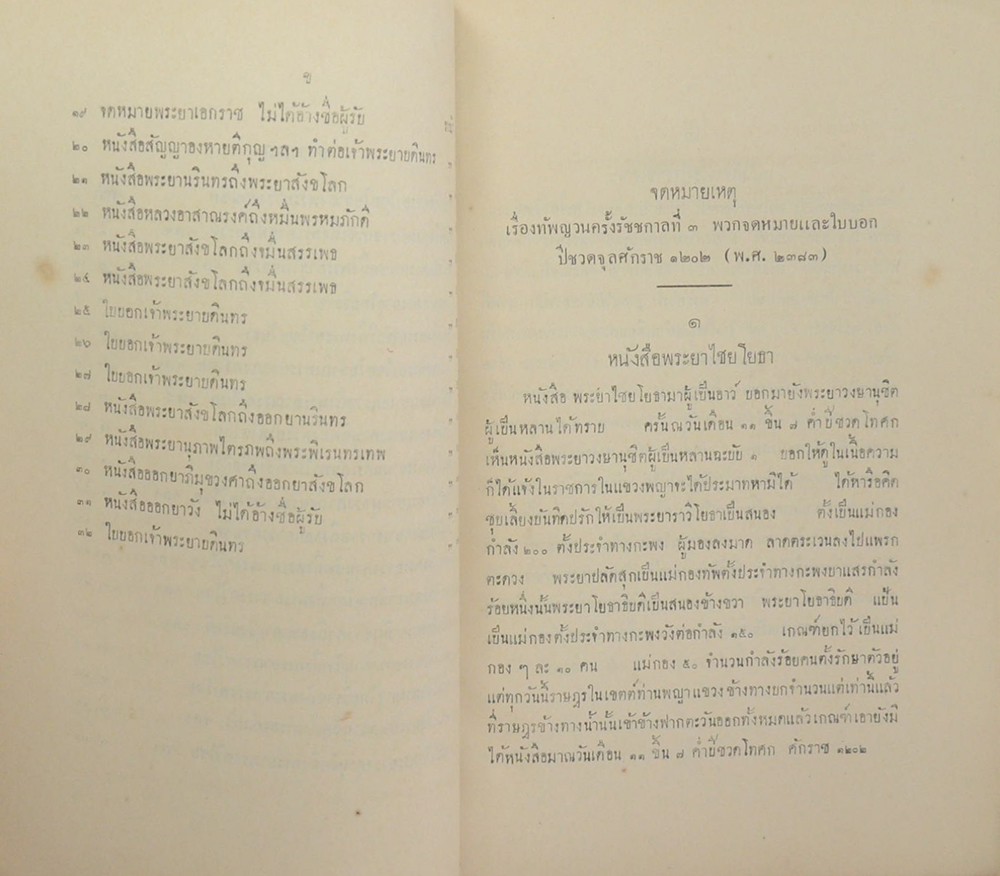 ข
๑๙ จดหมายพระยาเอกราช ไม่ได้อ้างชื่อผู้รับ
๒๐ หนังสือสัญญาองหายตึกุญ ฯลฯ ทำต่อเจ้าพระยาบดินทร
๒๑ หนังสือพระยานรินทรถึงพระยาสังขโลก
๒๒ หนังสือหลวงอาสาณรงค์ถึงหมื่นพรหมภักดี
๒๓ หนังสือพระยาสังขโลกถึงขมื่นสรรเพธ
๒๔ หนังสือพระยาสังขโลกถึงขมื่นสรรเพธ
๒๕ ใบบอกเจ้าพระยาบดินทร
๒๖ ใบบอกเจ้าพระยาบดินทร
๒๗ ใบบอกเจ้าพระยาบดินทร
๒๘ หนังสือพระยาสังขโลกถึงออกยานรินทร
๒๙ หนังสือพระยานุภาพไตรภพถึงพระพิเรนทรเทพ
๓๐ หนังสือออกยาภิมุขวงศาถึงออกยาสังขโลก
๓๑ หนังสือออกยาวัง ไม่ได้อ้างชื่อผู้รับ
๓๒ ใบบอกเจ้าพระยาบดินทร
จดหมายเหตุ
เรื่องทัพญวนครั้งรัชชกาลที่ ๓ พวกจดหมายและใบบอก
ปีชวดจุลศักราช ๑๒๐๒ (พ.ศ. ๒๓๘๓)
๑
หนังสือพระยาไชยโยธา
หนังสือ พระยาไชยโยธามาผู้เป็นอาว์ บอกมายังพระยาวงษานุชิต
ผู้เป็นหลานได้ทราบ ครั้นณวันเดือน ๑๑ ขึ้น ๗ ค่ำปีชวดโทศก
เห็นหนังสือพระยาวงษานุชิตผู้เป็นหลานฉะบับ ๑ บอกให้ดูในเนื้อความ
ก็ได้แจ้งในราชการในแขวงพญาจะได้ประมาทหามิได้ ได้หารือคิด
ชุบเลี้ยงบันทิตปรักให้เป็นพระยาราวิโยธาเป็นสนอง ตั้งเป็นแม่กอง
กำลัง ๒๐๐ ตั้งประจำทางกะพง ผู้มองลงมาด ลาดตระเวนลงไปแพรก
ตะดวง พระยาปลัดสุกเป็นแม่กองทัพตั้งประจำทางกะพงบาแสรกำลัง
ร้อยหนึ่งนั้นพระยาโยธาธิบดีเป็นสนองข้างขวา พระยาโยธาธิบดี แย้น
เป็นแม่กองตั้งประจำทางกะพงวังต่อกำลัง ๑๕๐ เกณฑ์ยกไว้เป็นแม่
กอง ๆ ละ ๑๐ คน แม่กอง ๕๐ จำนวนกำลังร้อยคนตั้งรักษาตัวอยู่
แต่ทุกวันนี้ราษฎรในเขตต์ท่านพญาแขวงข้างทางบกจำนวนแต่เท่านี้แล้ว
ที่ราษฎรข้างทางน้ำนั้นเข้าข้างฟากตะวันออกทั้งหมดแล้วเกณฑ์เอายังมิ
ได้หนังสือมาณวันเดือน ๑๑ ขึ้น ๗ ค่ำปีชวดโทศก ศักราช ๑๒๐๒